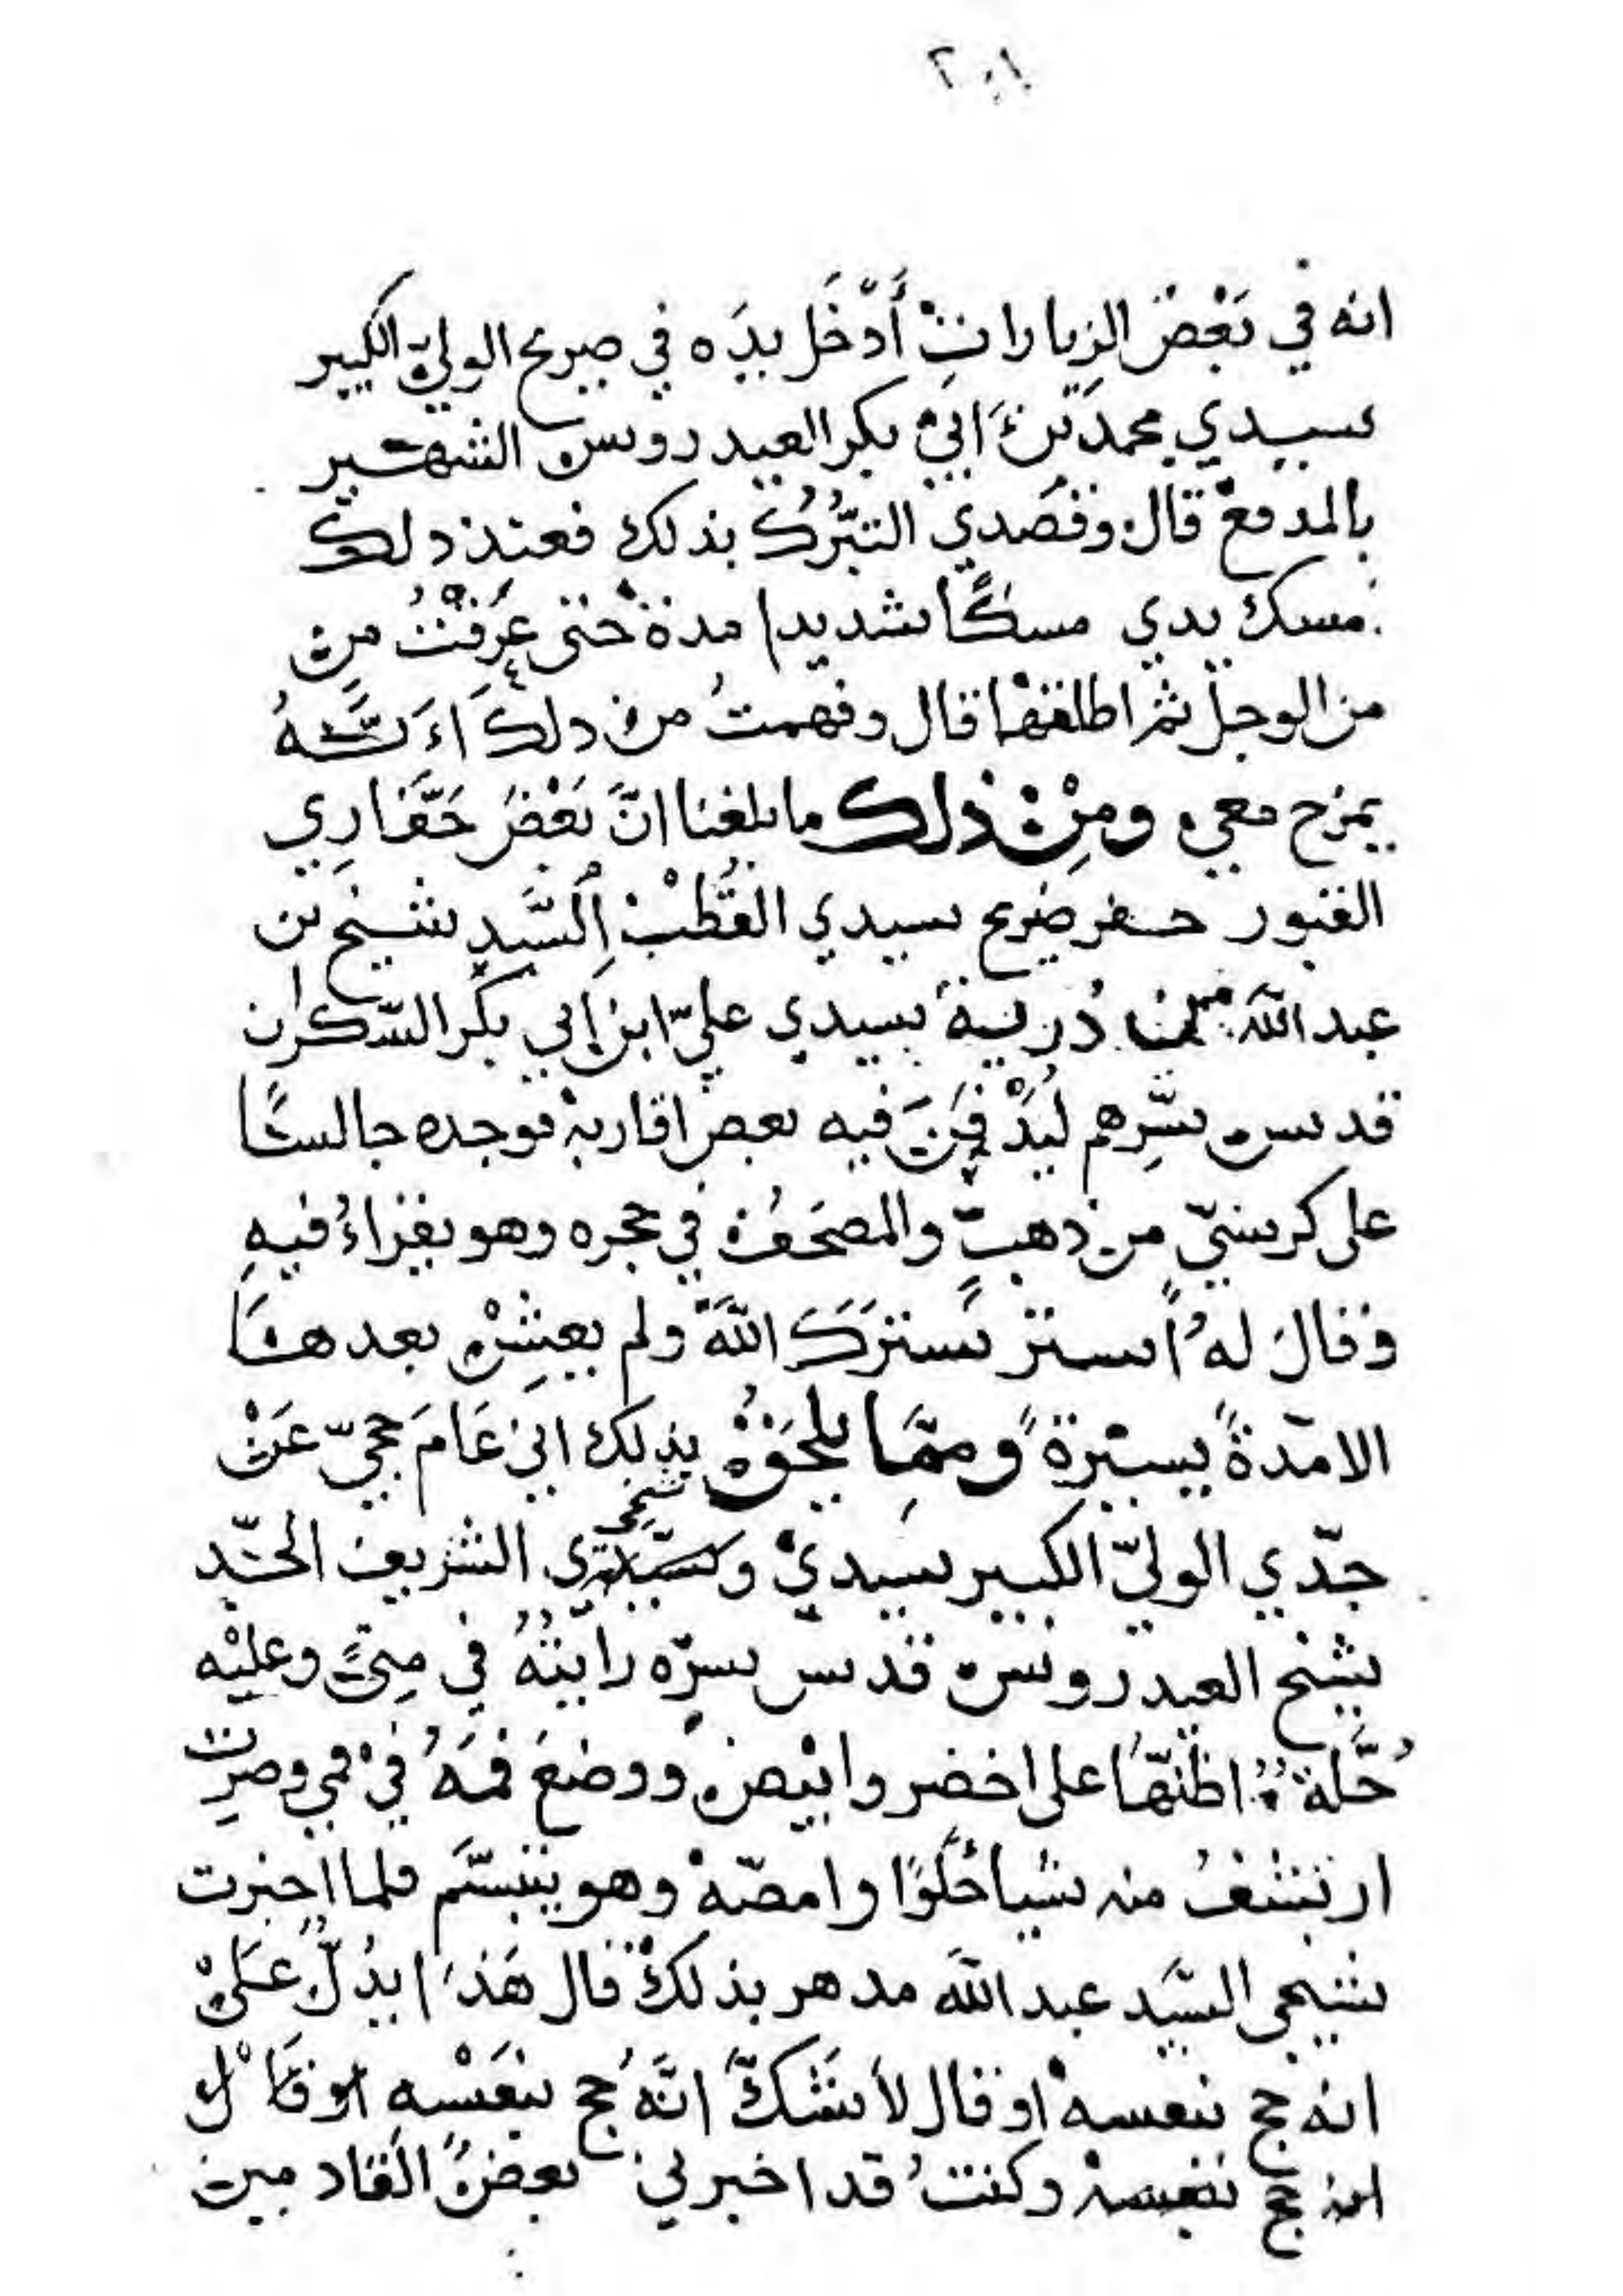 ٢٠١
انه في بَعْضِ الزيارات أَدْخَل يدَه في ضريح الوليّ الكبير
سيدي محمد بن ابي بكر العيدروس الشهير
بالمدفع قال وقصدي التبرُّك بذلك فعند ذلك
مسك يدي مسكًا شديدا مدة حتى عَرَقْتُ من
من الوجل ثم اطلقها قال وفهمتُ من ذلك اَنَّهُ
يمزح معي ومِنْ ذلك ما بلغنا انَّ بَعْضَ حَفَّارِي
القبور حفر ضريح سيدي القُطْب السَّيد شيخ بن
عبد الله من ذُرية سيدي عليّ ابن ابي بكر السّكران
قدس سِّرهم ليُدْفَنَ فيه بعض اقاربه فوجده جالسًا
على كرسيّ من ذهبٍ والمصحَف في حجره وهو يقراءُ فيهِ
فقالَ لهُ استر سَتَرَكَ اللهَ ولم يعِشْ بعد هذا
الا مّدةً يسيْرةً ومِمَّا يلحَقُ بذلك اني عَامَ حجيّ عَنْ
جدّي الوليّ الكبير سيدي وشيخي الشريف السّيد
شيخ العيدروس قدس سرّه رايتُهُ في مِنىً وعليْه
حُلَّة اظنّهَا على اخضر وابيض ووضعَ فمَهُ في فمي وصرِت
ارتشفُ منه شيا حُلْوًا وامصّه وهو يتبسَّم فلما اخبرت
شيخي السَّيد عبد الله مدهر بذلكْ قال هَذا يدُلُّ عَلىْ
انه حج بنفسهْ او قال لا نشكّ انَّهُ حج بنَفْسِهِ او قَالْ
انه حج بنفسه وكنتُ قد اخبرني بعضُ القادمين